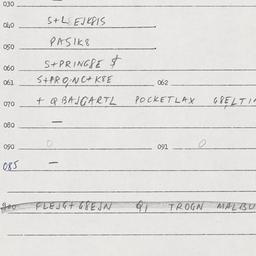 030
040 S+L EJKPIS
050 PASIK8
060 S+PRING8E $
061 S+PRO,NC+K8E 062
070 + QBAJGARTL POCKETLAX G8ELTIN
080 —
090 0 091 0
085 —
FLEJG+G8EJN Q1 TROGN MALBU